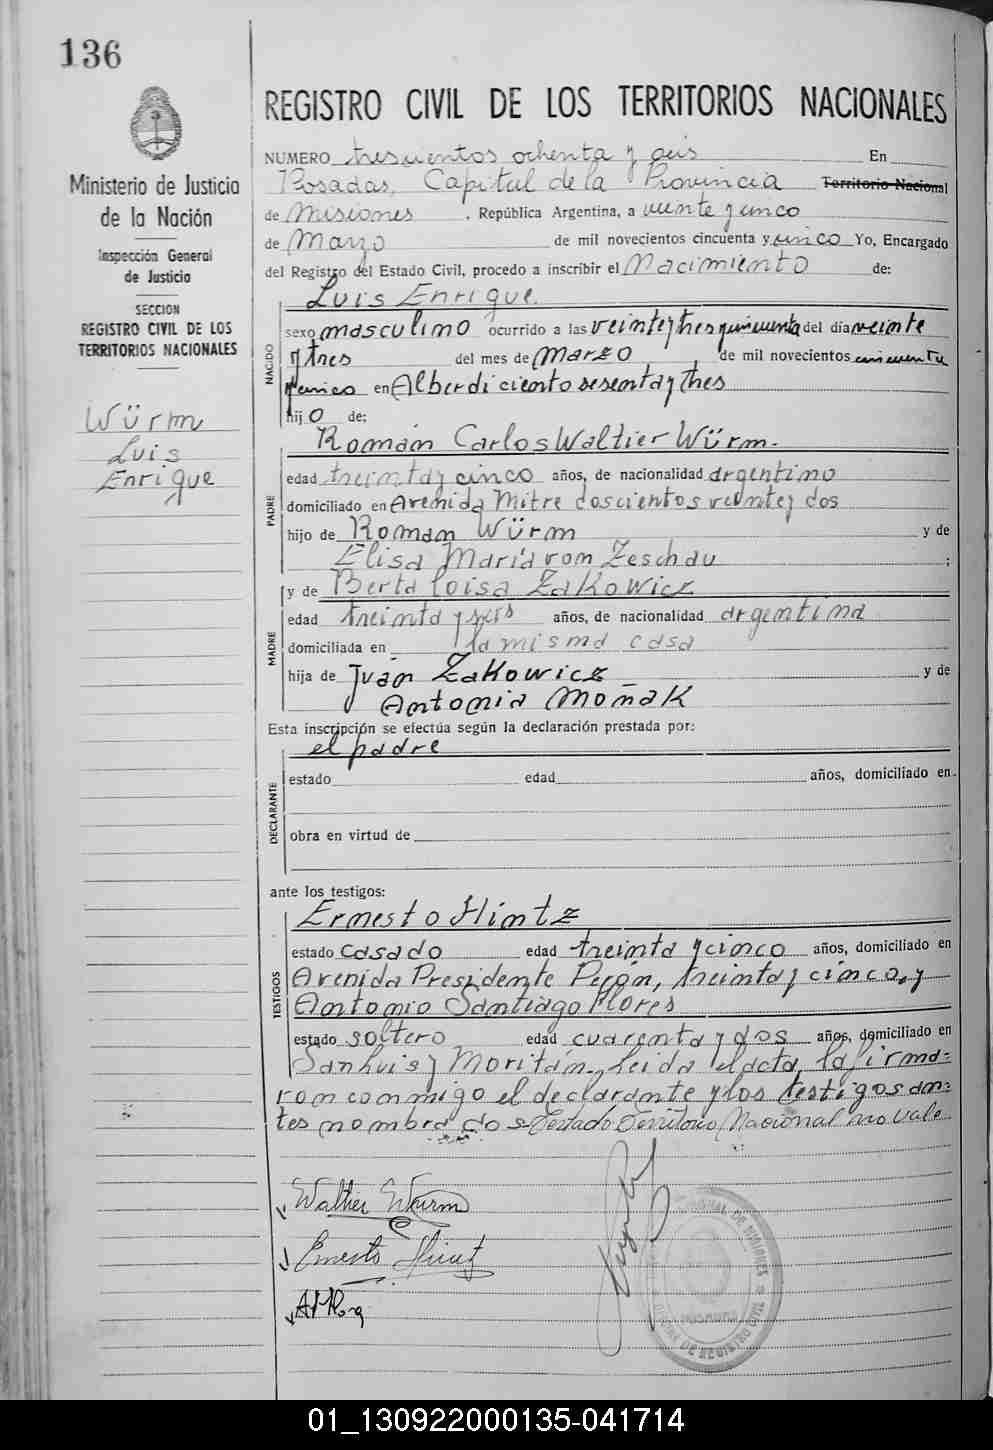 136
Ministerio de Justicia
de la Nación
Inspección General
de Justicia
SECCION
REGISTRO CIVIL DE LOS
TERRITORIOS NACIONALES
Würm
Luis
Enrique
REGISTRO CIVIL DE LOS TERRITORIOS NACIONALES
NUMERO trescientos ochenta y seis En
Posadas, Capital de la Provincia Territorio Nacional
de Misiones , República Argentina, a veinte y cinco
de Marzo de mil novecientos cincuenta y cinco Yo, Encargado
del Registro del Estado Civil, procedo a inscribir el Nacimiento de:
NACIDO
Luis Enrique.
sexo masculino ocurrido a las veinte y tres y cincuenta del día veinte
y tres del mes de Marzo de mil novecientos cincuenta
y cinco en Alberdi ciento sesenta y tres
hijo de:
PADRE
Román Carlos Waltier Würm.
edad treinta y cinco años, de nacionalidad argentino
domiciliado en Avenida Mitre doscientos veinte y dos
hijo de Roman Würm y de
Elisa María von Zeschau ;
y de Berta Loisa Zakowicz
MADRE
edad treinta y seis años, de nacionalidad argentina
domiciliada en la misma casa
hija de Juan Zakowicz y de
Antonia Moñak
Esta inscripción se efectúa según la declaración prestada por:
el padre
DECLARANTE
estado edad años, domiciliado en
obra en virtud de
ante los testigos:
TESTIGOS
Ernesto Hintz
estado casado edad treinta y cinco años, domiciliado en
Avenida Presidente Perón, treinta y cinco, y
Antonio Santiago Flores
estado soltero edad cuarenta y dos años, domiciliado en
San Luis y Moritán. Leida el acta, la firma=
ron conmigo el declarante y los testigos an=
tes nombrados= Testado Territorio Nacional no vale
Walther Wurm
Ernesto Hintz
OFICINA DE REGISTRO CIVIL
01_130922000135-041714